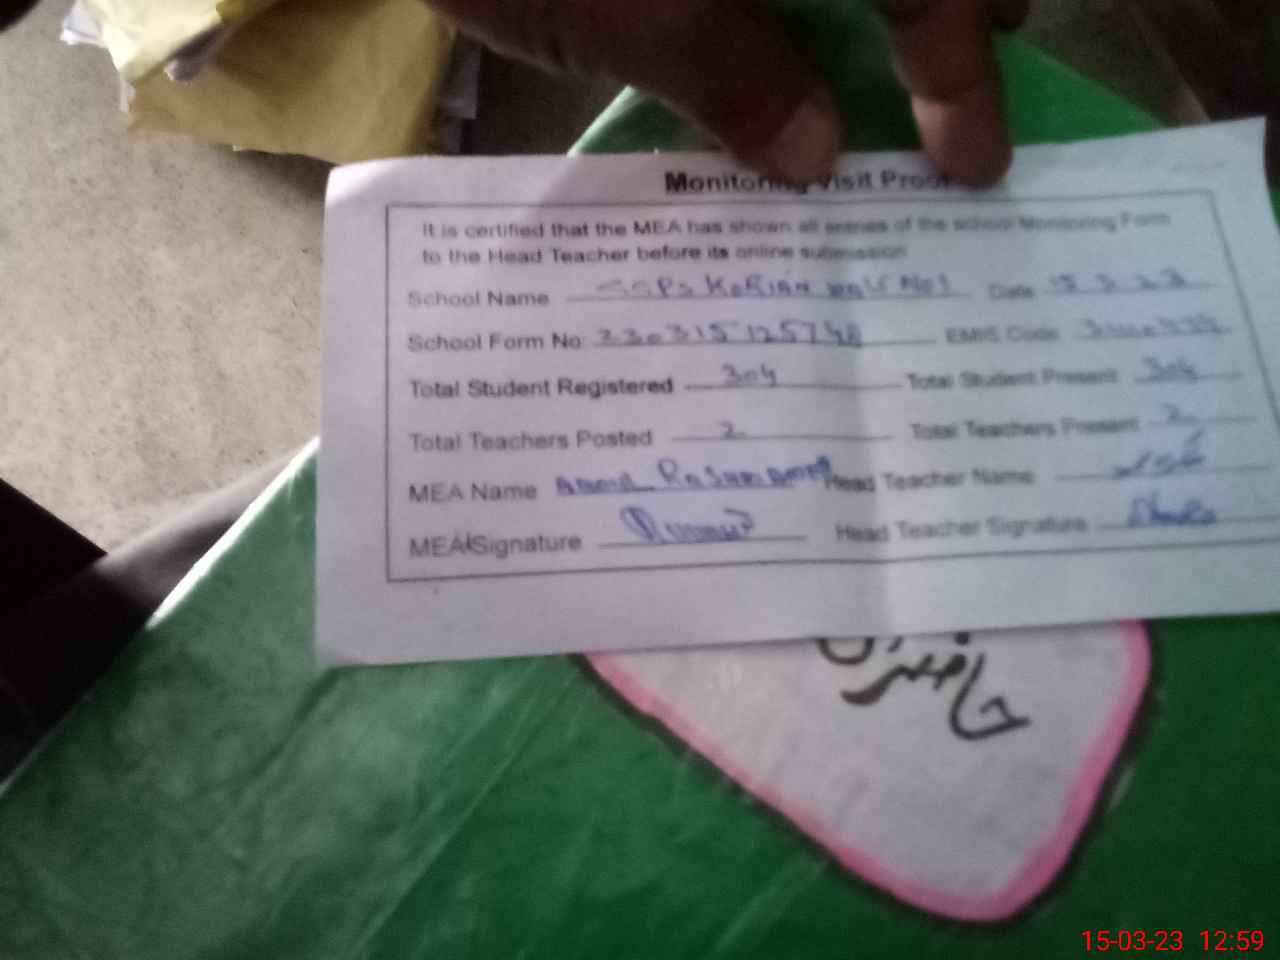 Monitoring Visit Proof
It is certified that the MEA has shown all entries of the school Monitoring Form
to the Head Teacher before its online submission
School Name GGPS KORIAN WALI NO1 Date 15 3 23
School Form No 230315125748 EMIS Code
Total Student Registered 304 Total Student Present 304
Total Teachers Posted 2 Total Teachers Present 2
MEA Name Abdul Head Teacher Name
MEA Signature Head Teacher Signature
حاضری
15-03-23 12:59